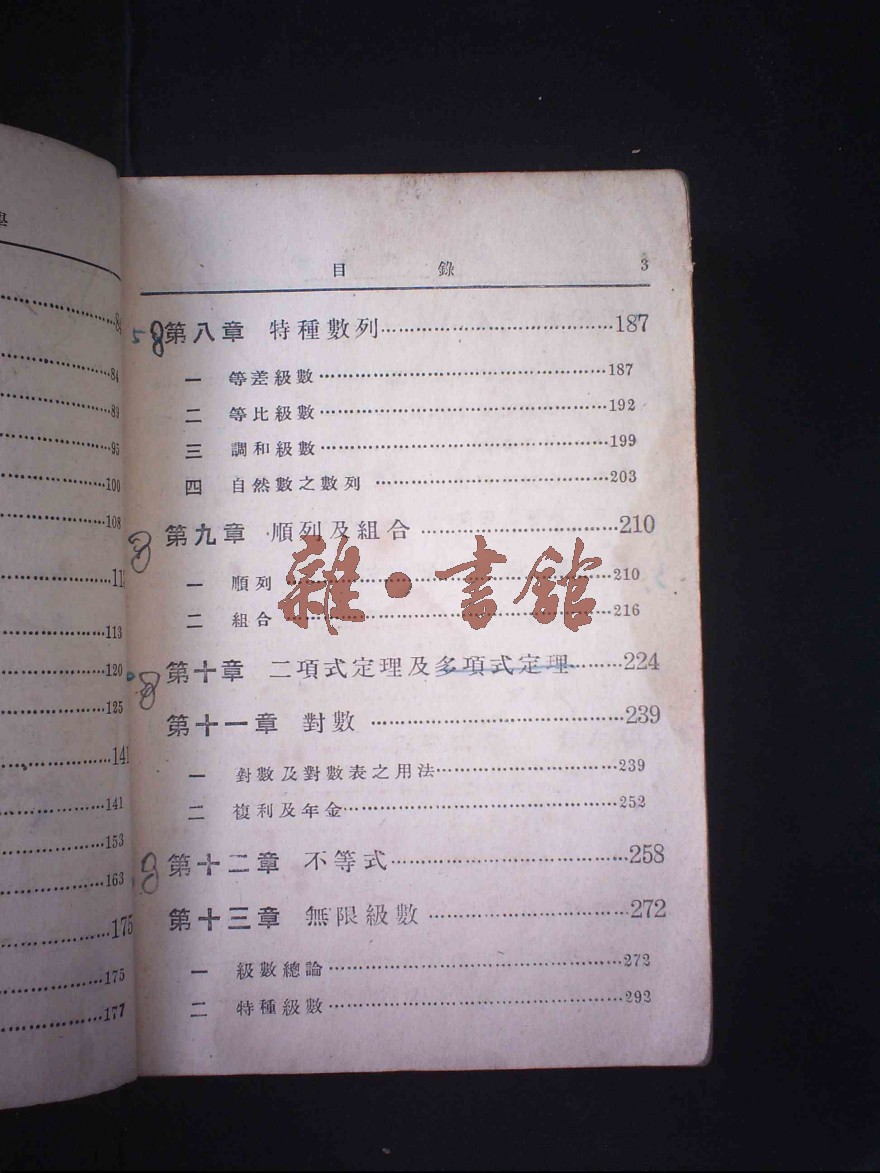 學
84
84
89
95
100
108
113
120
125
141
141
153
163
175
175
177
目錄 3
第八章 特種數列……187
一 等差級數……187
二 等比級數……192
三 調和級數……199
四 自然數之數列……203
第九章 順列及組合……210
一 順列……210
二 組合……216
第十章 二項式定理及多項式定理……224
第十一章 對數……239
一 對數及對數表之用法……239
二 複利及年金……252
第十二章 不等式……258
第十三章 無限級數……272
一 級數總論……272
二 特種級數……292
雜·書館